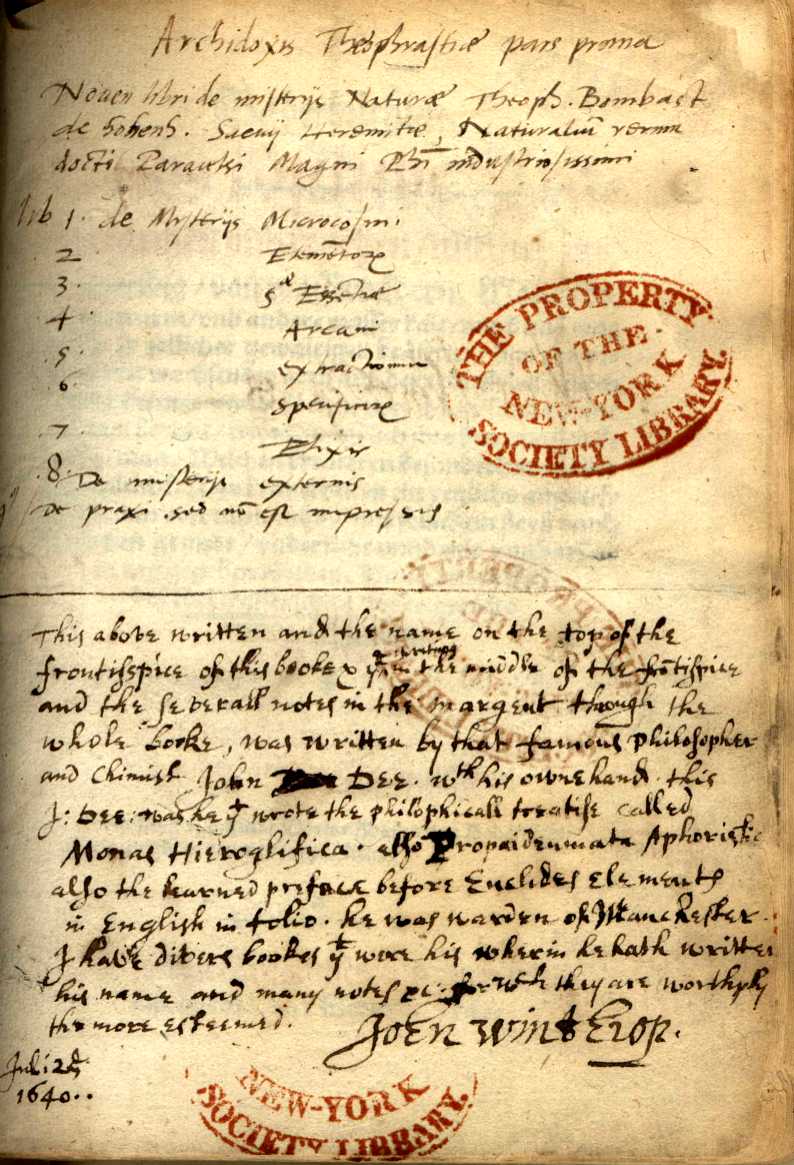 Archidoxis Theophrastiæ pars prima
Novem libri de misterijs Naturæ Theoph. Bombast
de hohenh. Suevij Heremitæ, Naturaliũ rerum
docti Paracelsi Magni Phi industriosissimi
lib 1. de Mysterijs Microcosmi.
2 Elemẽtorꝫ
3. 5æ Essẽtiæ
4. Arcani
5. extractionum
6 specificorꝫ
7 Elixir
8. De misterijs externis
De praxi. sed nõ est impressus
THE PROPERTY
OF THE
NEW-YORK
SOCIETY LIBRARY.
This above written and the name on the top of the
frontisspice of this booke & yt writing in the middle of the frõtispice
and the severall notes in the margent through the
whole booke, was written by that famous philosopher
and Chimist John Dee. wth his owne hand. this
J: Dee: was he yt wrote the philophicall treatise called
Monas Hieroglifica. also Propaideumata Aphoristic
also the learned preface before Euclides Elements
in English in folio. he was warden of Manchester.
I have divers bookes yt were his wherin he hath written
his name and many notes for wch they are worthyly
the more esteemed.
John Winthrop.
1640..
NEW-YORK
SOCIETY LIBRARY.